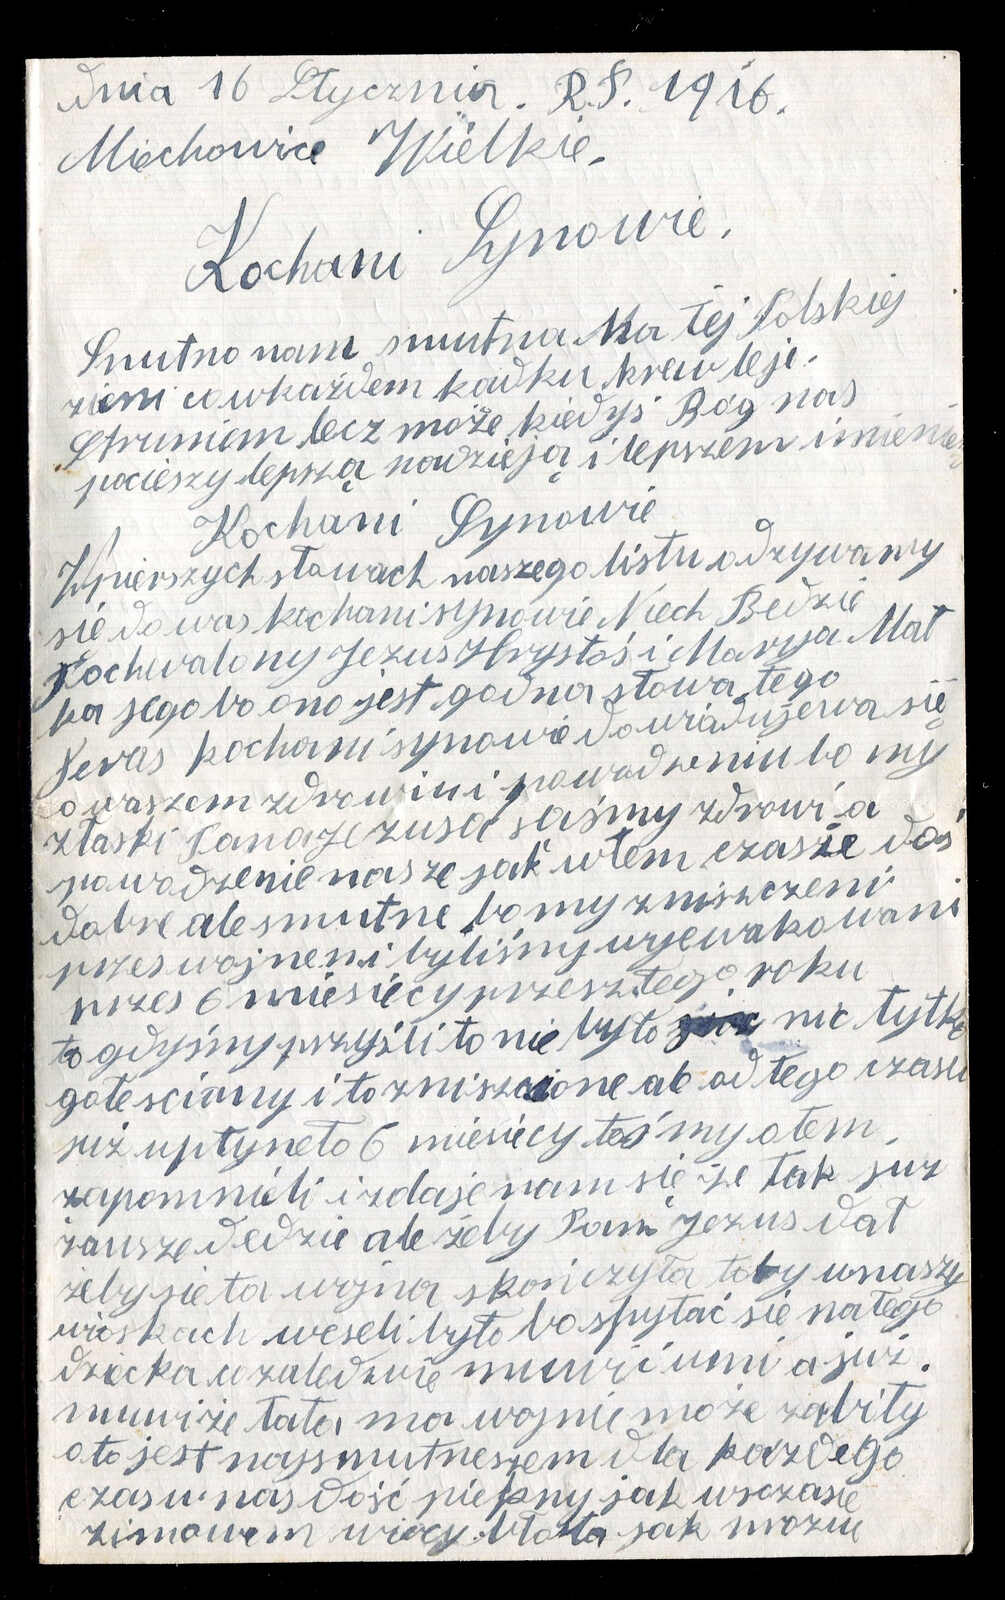 dnia 16 Stycznia. R.P. 1916.
Miechowice Wielkie.
Kochani Synowie.
Smutno nam smutna Na tej Polskiej
ziemi co wkażdem kadku krew leje.
Strumiem lecz może kiedyś Bóg nas
pocieszy lepszą nadzieją i lepszem
Kochani Synowie
Wpierszych słowach naszego listu odzywamy
sie do was kochani synowie Niech Bedzie
Pochwalony Jezus Hrystoś i Maryja Mat
ka jego bo ono jest godna słowa tego
Teras kochani synowie dowiadujewa się
o waszem zdrowiu i powodzeniu bo my
złaski Pana Jezusa saśmy zdrowi a
powodzenie nasze jak wtem czasie doś
dobre ale smutne bo my zniszczeni
przes wojne ni byliśmy wyewakowani
przes 6 miesięcy przeszłego roku
to gdyśmy przyśli to nie było nic tylko
gołe sciany i to zniszczone ale od tego czasu
już upłyneło 6 miesiecy teśmy otem.
zapomnieli i zdaje nam się że tak juz
zausze bedzie ale żeby Pan Jezus dał
żeby sie ta wojna skończyła toby wnaszy
wioskach weseli było bo spytać sie natego
dziecka co zaledwie muwić umi a już.
muwi że tata na wojnie może zabity
a to jest najsmutneszem dla każdego
czas u nas dość piekny jak wczasie
zimowem wiecy błota jak mrozu